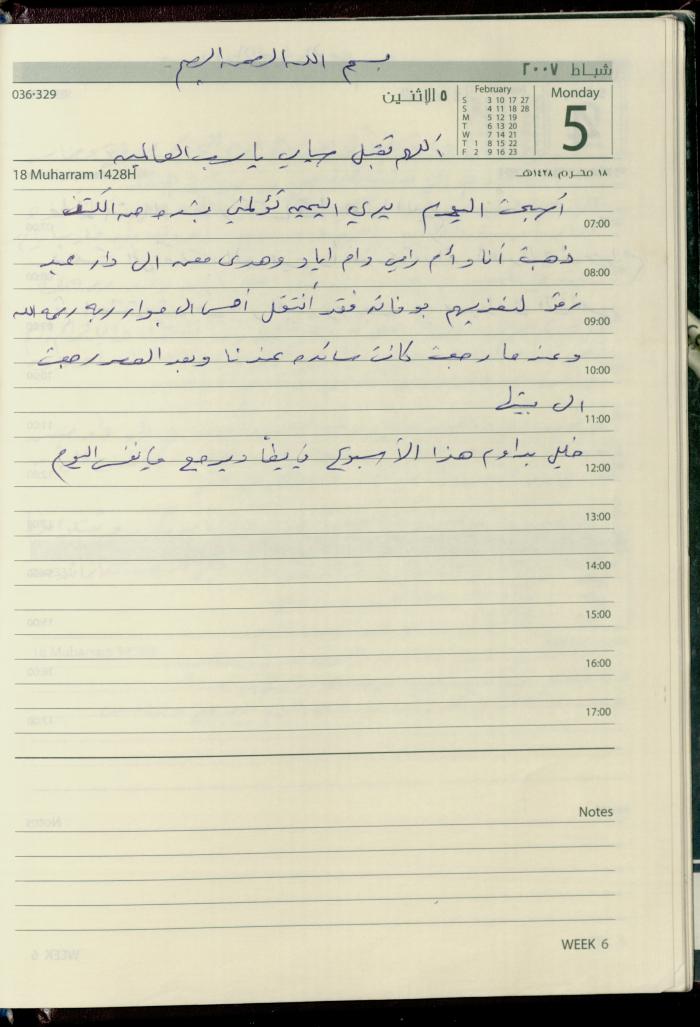 بسم الله الرحمن الرحيم
شباط ٢٠٠٧
036-329
٥ الاثنين
February
S 3 10 17 27
S 4 11 18 28
M 5 12 19
T 6 13 20
W 7 14 21
T 1 8 15 22
F 2 9 16 23
Monday
5
اللهم تقبل صيامي يا رب العالمين
18 Muharram 1428H
١٨ محرم ١٤٢٨هـ
أصبحت اليوم يدي اليمين تؤلمني بشده من الكتف
07:00
ذهبت أنا وأم رامي وام اياد وهدى معنا الى دار عبد
08:00
لنعزيهم بوفاته فقد أنتقل أمس الى جوار ربه رحمه الله
09:00
وعندما رجعت كانت سائده عندنا وبعد العصر رجعت
10:00
الى بيتها
11:00
خليل بداوم هذا الأسبوع في يطا ويرجع في نفس اليوم
12:00
13:00
14:00
15:00
16:00
17:00
Notes
WEEK 6